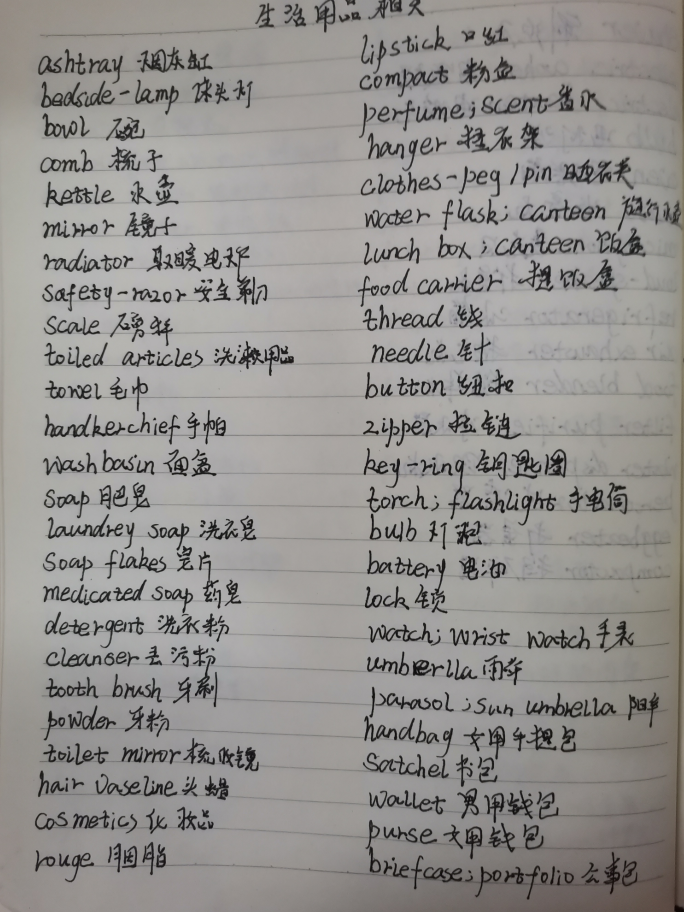 生活用品相关
ashtray 烟灰缸
bedside-lamp 床头灯
bowl 碗
comb 梳子
kettle 水壶
mirror 镜子
radiator 取暖电炉
safety-razor 安全剃刀
scale 磅秤
toiled articles 洗漱用品
towel 毛巾
handkerchief 手帕
wash basin 面盆
soap 肥皂
laundrey soap 洗衣皂
soap flakes 皂片
medicated soap 药皂
detergent 洗衣粉
cleanser 去污粉
tooth brush 牙刷
powder 牙粉
toilet mirror 梳妆镜
hair vaseline 头蜡
cosmetics 化妆品
rouge 胭脂
lipstick 口红
compact 粉盒
perfume; scent 香水
hanger 挂衣架
clothes-peg / pin 晒衣夹
water flask; canteen 旅行水壶
lunch box; canteen 饭盒
food carrier 提饭盒
thread 线
needle 针
button 纽扣
zipper 拉链
key-ring 钥匙圈
torch; flashlight 手电筒
bulb 灯泡
battery 电池
lock 锁
watch; wrist watch 手表
umbrerlla 雨伞
parasol; sun umbrella 阳伞
handbag 女用手提包
satchel 书包
wallet 男用钱包
purse 女用钱包
briefcase; portfolio 公事包